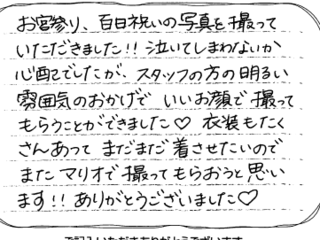 お宮参り、百日祝いの写真を撮って
いただきました!! 泣いてしまわないか
心配でしたが、スタッフの方の明るい
雰囲気のおかげで いいお顔で撮って
もらうことができました♡ 衣装もたく
さんあって まだまだ着させたいので
またマリオで撮ってもらおうと思い
ます!! ありがとうございました♡
ご記入いただきありがとうございます